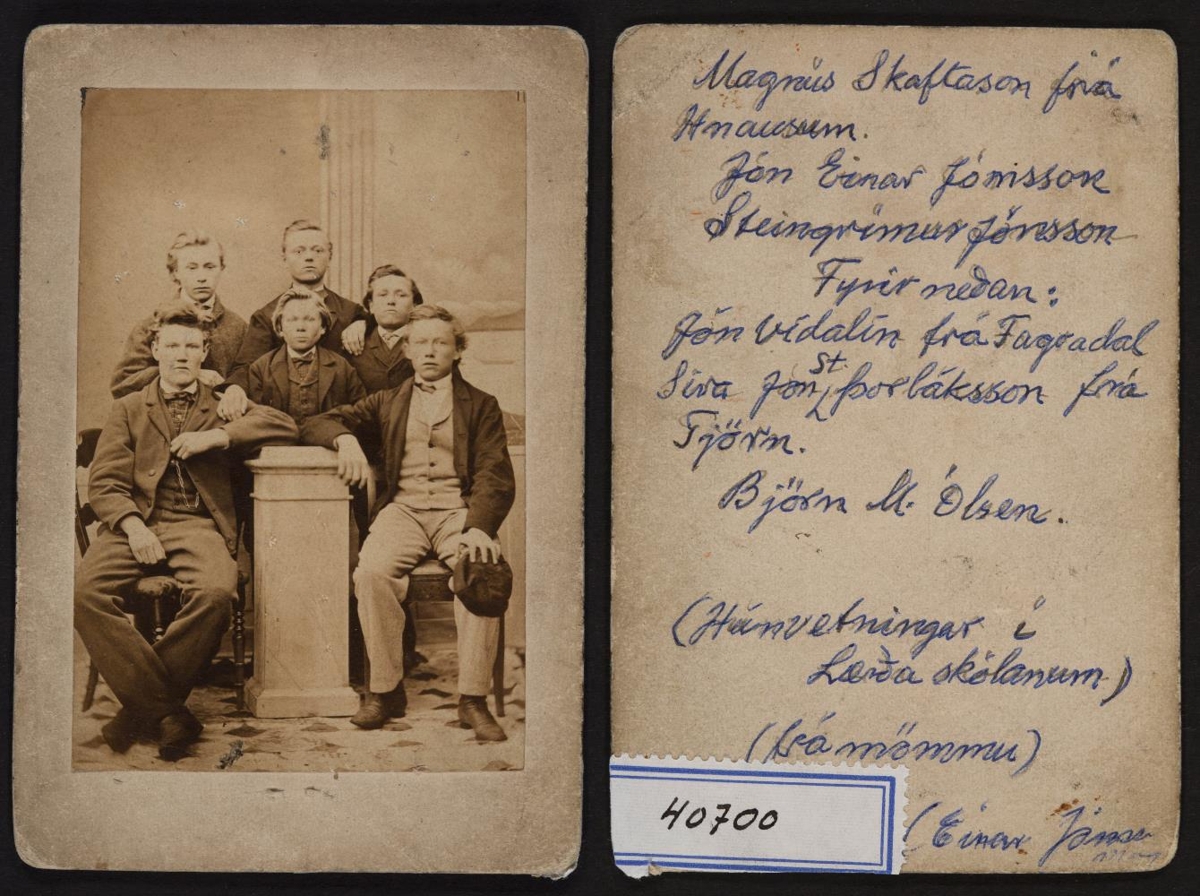 Magnús Skaftason frá
Hnausum.
Jón Einar Jónsson
Steingrímur Jónsson
Fyrir neðan:
Jón Vídalín frá Fagradal
Síra Jón St. Þorláksson frá
Tjörn.
Björn M. Ólsen.
(Húnvetningar í
Lærða skólanum)
(frá mömmu)
40700
(Einar Jóns